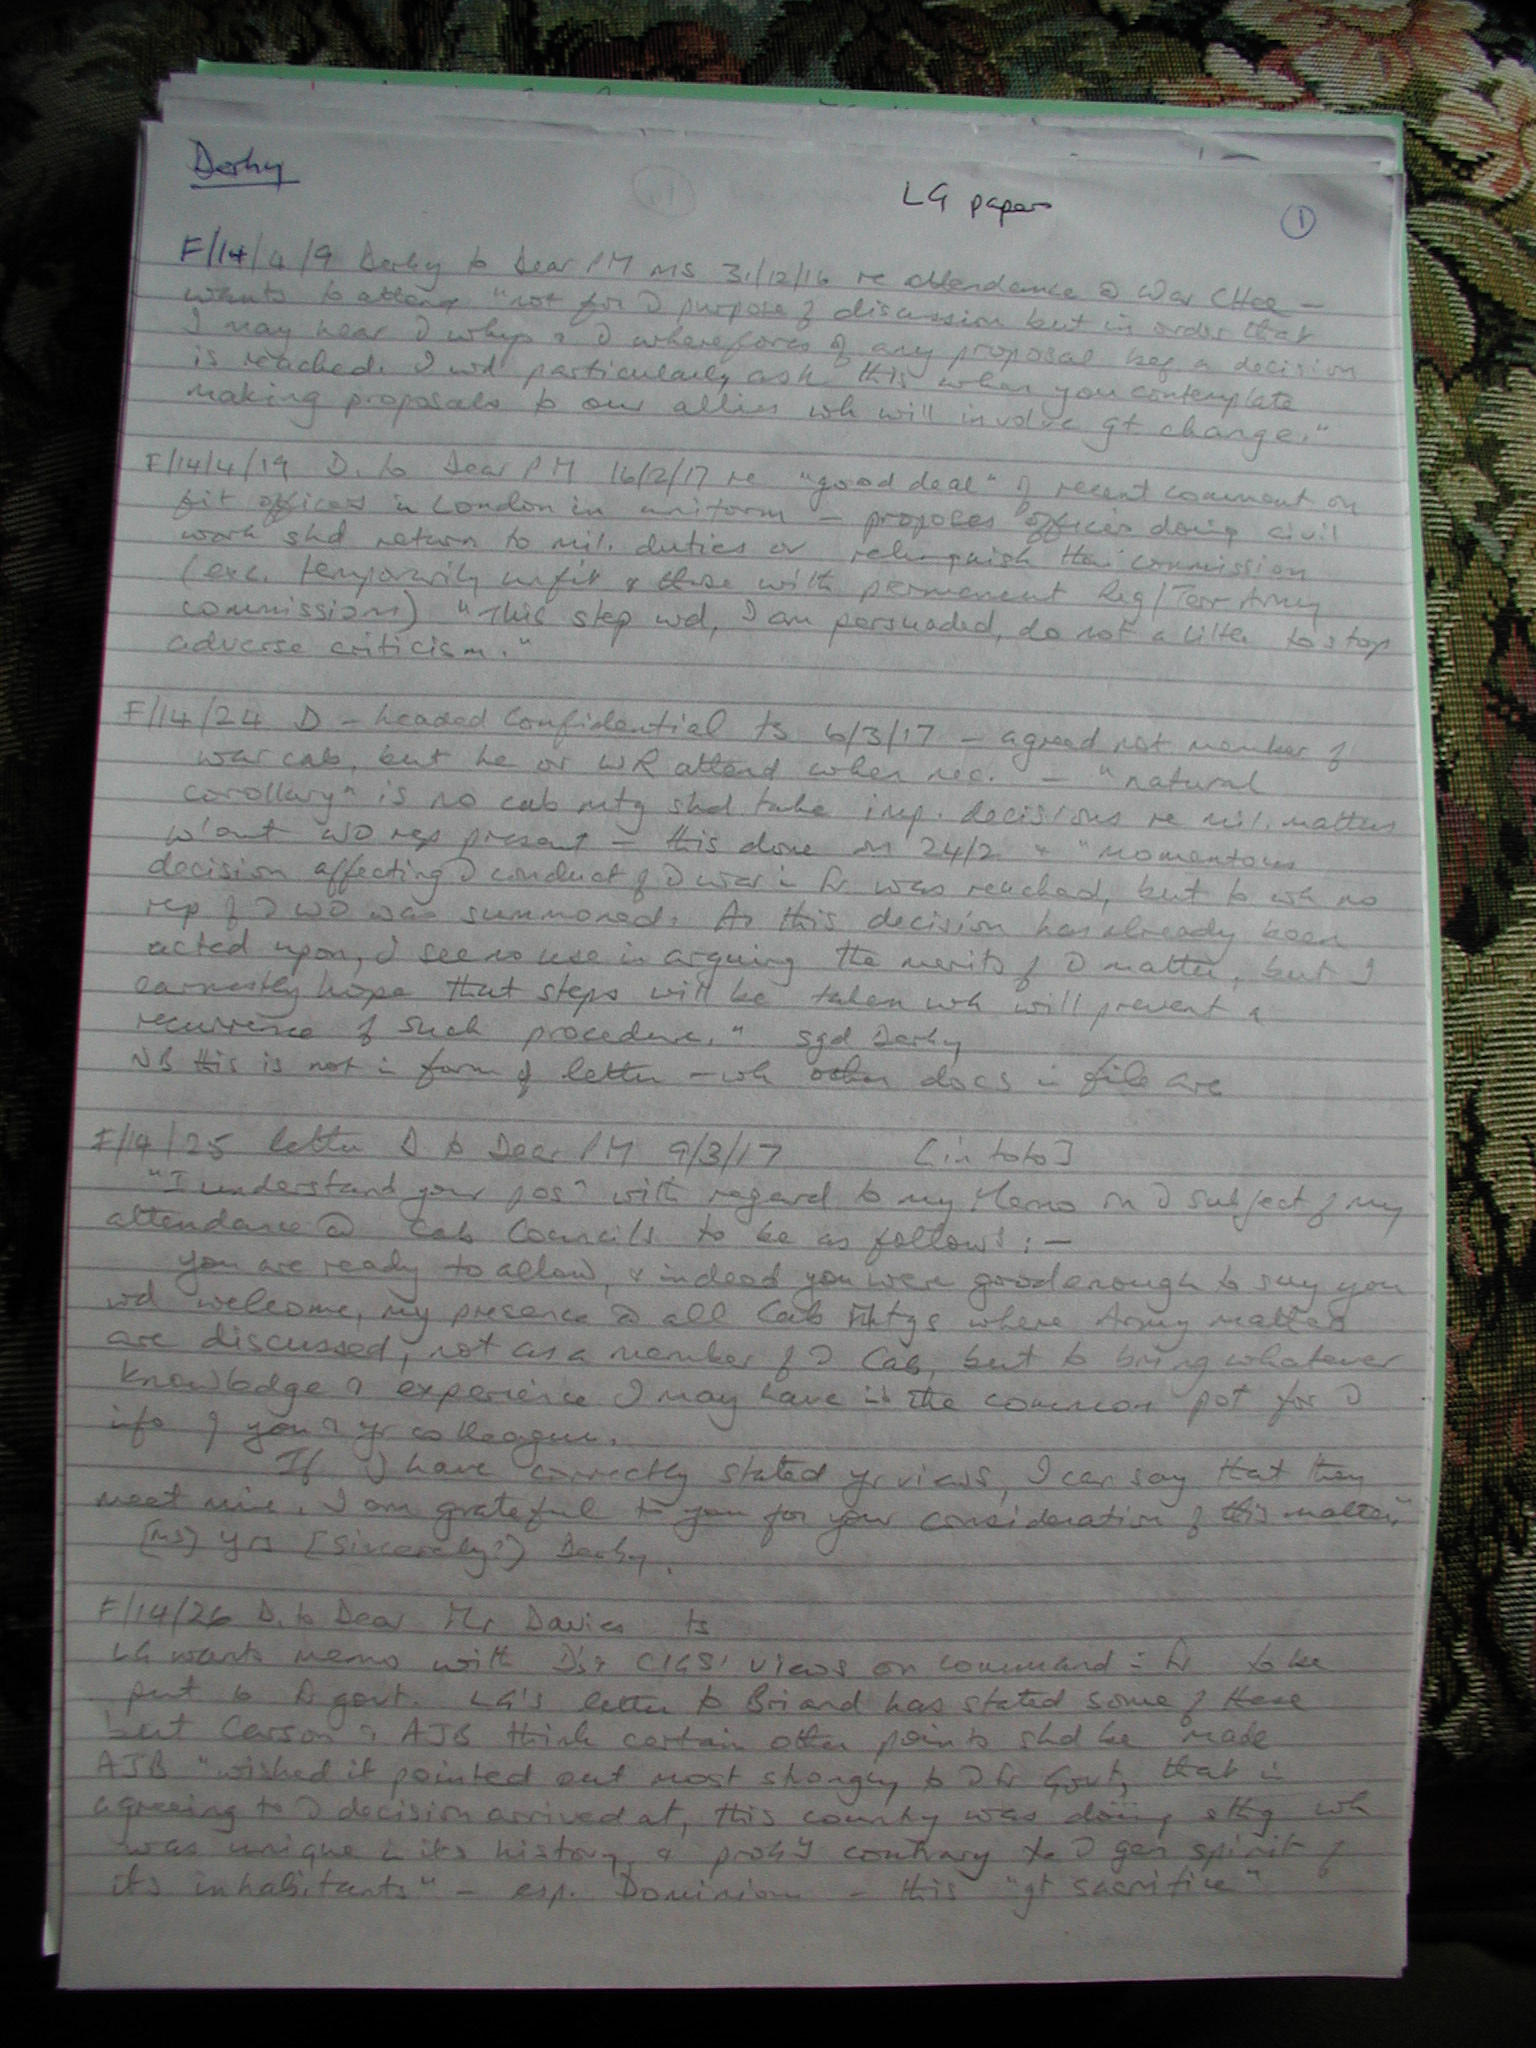 Derby
LG papers
1
F/14/4/9 Derby to Dear PM MS 31/12/16 re attendance @ War Cttee –
wants to attend "not for D purpose of discussion but in order that
I may hear D whys & D wherefores of any proposal bef a decision
is reached. I wd particularly ask this when you contemplate
making proposals to our allies wh will involve gt change."
F/14/4/19 D. to Dear PM 16/2/17 re "good deal" of recent comment on
fit officers in London in uniform – proposes officers doing civil
work shd return to mil. duties or relinquish their commission
(exc. temporarily unfit & those with permanent Reg/Terr Army
commissions) "This step wd, I am persuaded, do not a little to stop
adverse criticism."
F/14/24 D – headed Confidential ts 6/3/17 – agreed not member of
war cab, but he or WR attend when nec. – "natural
corollary" is no cab mtg shd take imp. decisions re mil. matters
w'out WO reps present – this done on 24/2 & "momentous
decision affecting D conduct of D war in Fr was reached, but to wh no
rep of D WO was summoned. As this decision has already been
acted upon, I see no use in arguing the merits of D matter, but I
earnestly hope that steps will be taken wh will prevent a
recurrence of such procedure." sgd Derby
NB this is not in form of letter – wh other docs in file are
F/14/25 letter D to Dear PM 9/3/17 [in toto]
"I understand your posn with regard to my Memo on D subject of my
attendance @ Cab Councils to be as follows: –
You are ready to allow, & indeed you were good enough to say you
wd welcome, my presence @ all Cab Mtgs where Army matters
are discussed, not as a member of D Cab, but to bring whatever
knowledge & experience I may have in the common pot for D
info of you & yr colleagues.
If I have correctly stated yr views, I can say that they
meet mine. I am grateful to you for your consideration of this matter."
(MS) Yrs [Sincerely?] Derby.
F/14/26 D. to Dear Mr Davies ts
LG wants memo with D's & CIGS' views on command in Fr to be
put to Fr govt. LG's letter to Briand has stated some of these
but Carson & AJB think certain other points shd be made
AJB "wished it pointed out most strongly to D Fr Govt, that in
agreeing to D decision arrived at, this country was doing sthg wh
was unique in its history & probly contrary to D gen spirit of
its inhabitants" – esp. Dominion – this "gt sacrifice"